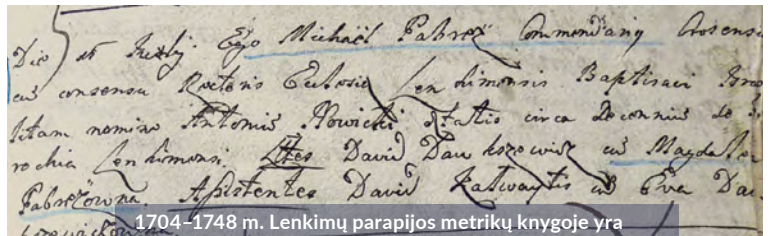 Die 28 Ego Michaël Pabrez Commendariꝰ Crosensis
cū consensu Rectoris Ecclesiæ Lenkimensis Baptisavi
nomine Antoniū Nowicki ætatis circa Decenniū de
rochia Lenkimensi. Lttes David Dau kszewicz cū Magdalen
Pabrezowna. Assistentes David Katwaytis cū Eva Dau
1704–1748 m. Lenkimų parapijos metrikų knygoje yra